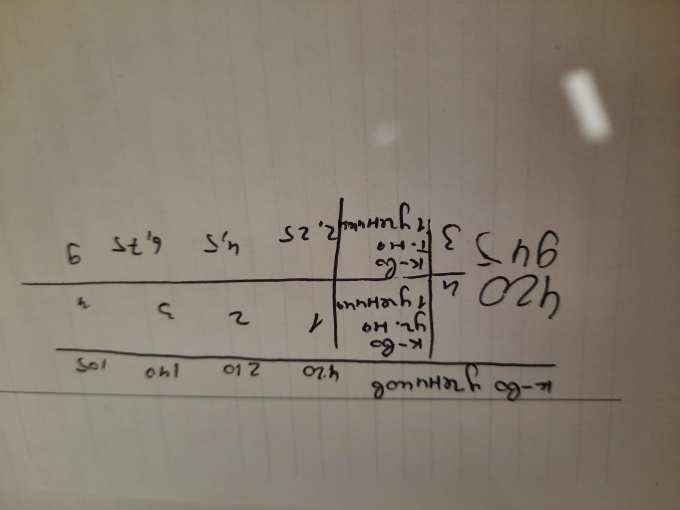 к-во учеников 420 210 140 105
к-во
уг. на
420 ч 1 ученика 1 2 3 4
к-во
т. на
945 3 1 ученика 2,25 4,5 6,75 9